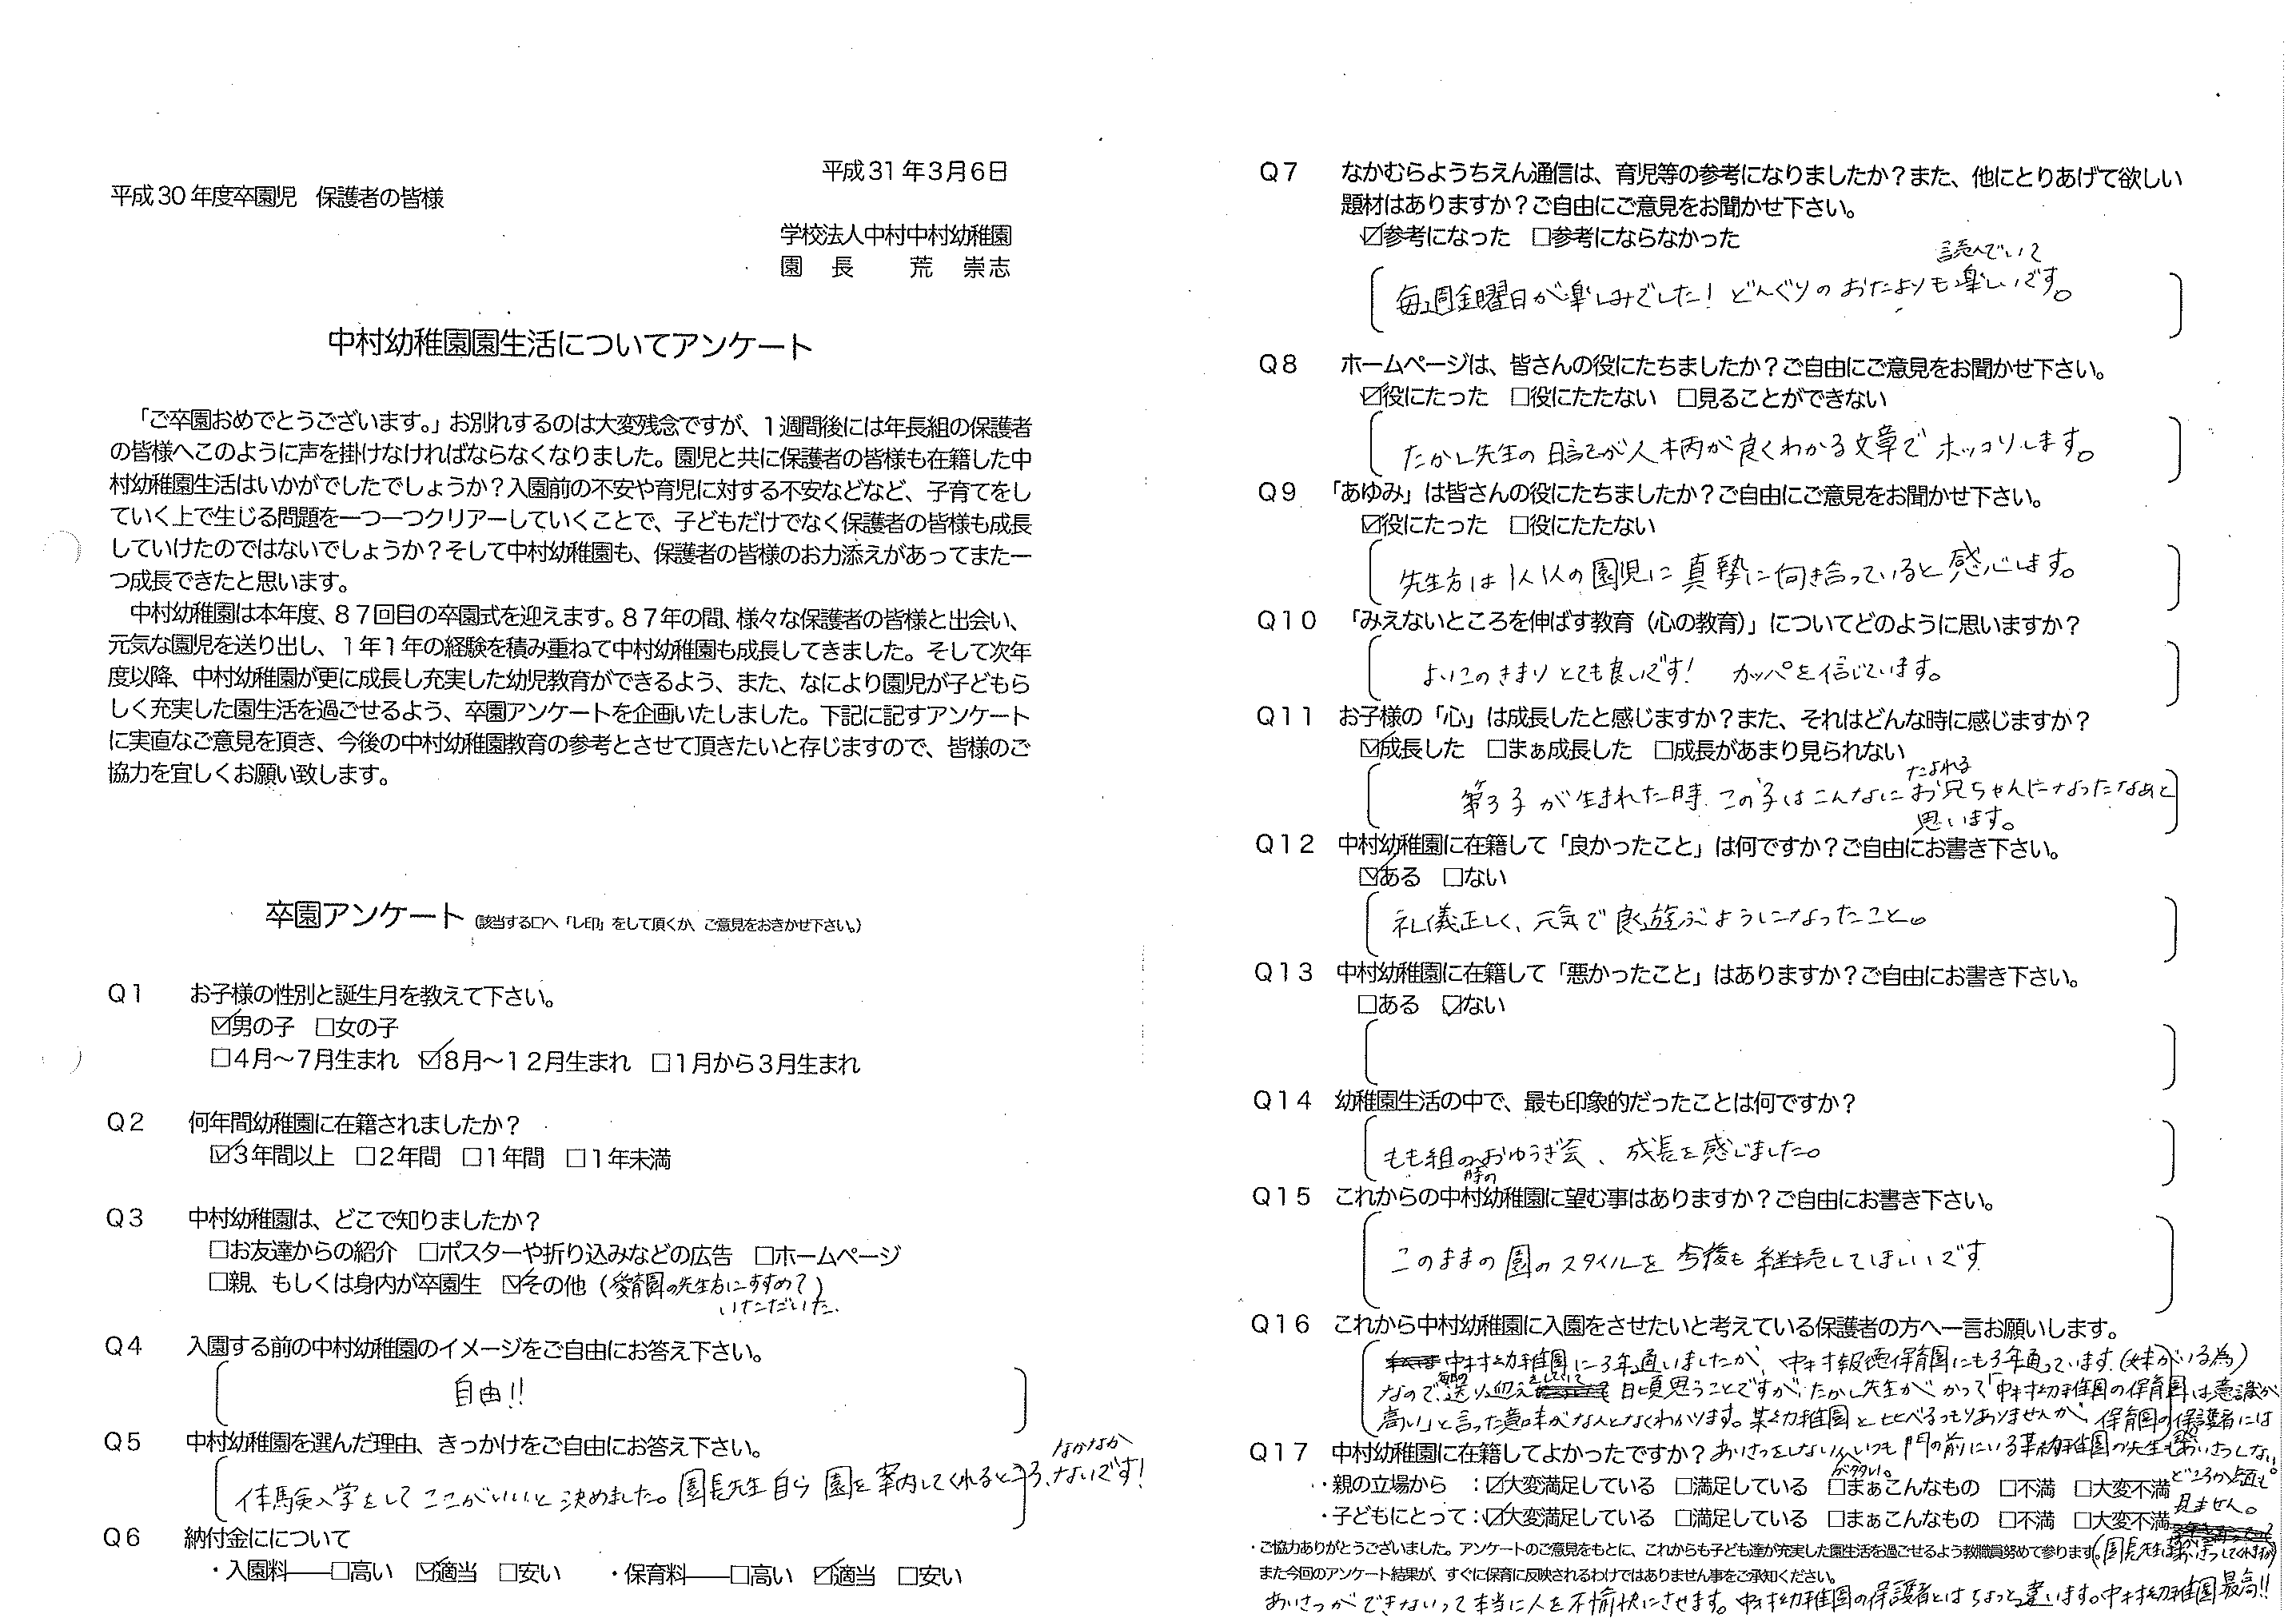 平成31年3月6日
平成30年度卒園児　保護者の皆様
学校法人中村中村幼稚園
園　長　　荒　崇志
中村幼稚園園生活についてアンケート
「ご卒園おめでとうございます。」お別れするのは大変残念ですが、1週間後には年長組の保護者
の皆様へこのように声を掛けなければならなくなりました。園児と共に保護者の皆様も在籍した中
村幼稚園生活はいかがでしたでしょうか？入園前の不安や育児に対する不安などなど、子育てをし
ていく上で生じる問題を一つ一つクリアーしていくことで、子どもだけでなく保護者の皆様も成長
していけたのではないでしょうか？そして中村幼稚園も、保護者の皆様のお力添えがあってまた一
つ成長できたと思います。
中村幼稚園は本年度、87回目の卒園式を迎えます。87年の間、様々な保護者の皆様と出会い、
元気な園児を送り出し、1年1年の経験を積み重ねて中村幼稚園も成長してきました。そして次年
度以降、中村幼稚園が更に成長し充実した幼児教育ができるよう、また、なにより園児が子どもら
しく充実した園生活を過ごせるよう、卒園アンケートを企画いたしました。下記に記すアンケート
に実直なご意見を頂き、今後の中村幼稚園教育の参考とさせて頂きたいと存じますので、皆様のご
協力を宜しくお願い致します。
卒園アンケート（該当する□へ「レ印」をして頂くか、ご意見をおきかせ下さい。）
Q1　お子様の性別と誕生月を教えて下さい。
☑男の子　□女の子
□4月～7月生まれ　☑8月～12月生まれ　□1月から3月生まれ
Q2　何年間幼稚園に在籍されましたか？
☑3年間以上　□2年間　□1年間　□1年未満
Q3　中村幼稚園は、どこで知りましたか？
□お友達からの紹介　□ポスターや折り込みなどの広告　□ホームページ
□親、もしくは身内が卒園生　☑その他（愛育園の先生方にすすめて）
いただいた。
Q4　入園する前の中村幼稚園のイメージをご自由にお答え下さい。
自由!!
Q5　中村幼稚園を選んだ理由、きっかけをご自由にお答え下さい。
なかなか
体験入学をしてここがいいと決めました。園長先生自ら園を案内してくれるところ、ないです！
Q6　納付金にについて
・入園料――□高い　☑適当　□安い　　・保育料――□高い　☑適当　□安い
Q7　なかむらようちえん通信は、育児等の参考になりましたか？また、他にとりあげて欲しい
題材はありますか？ご自由にご意見をお聞かせ下さい。
☑参考になった　□参考にならなかった
読んでいて
毎週金曜日が楽しみでした！どんぐりのおたよりも楽しいです。
Q8　ホームページは、皆さんの役にたちましたか？ご自由にご意見をお聞かせ下さい。
☑役にたった　□役にたたない　□見ることができない
たかし先生の日記が人柄が良くわかる文章でホッコリします。
Q9　「あゆみ」は皆さんの役にたちましたか？ご自由にご意見をお聞かせ下さい。
☑役にたった　□役にたたない
先生方は1人1人の園児に真摯に向き合っていると感心します。
Q10　「みえないところを伸ばす教育（心の教育）」についてどのように思いますか？
よいこのきまりとても良いです！　カッパを信じています。
Q11　お子様の「心」は成長したと感じますか？また、それはどんな時に感じますか？
☑成長した　□まぁ成長した　□成長があまり見られない
たよれる
第3子が生まれた時、この子はこんなにお兄ちゃんになったなあと
思います。
Q12　中村幼稚園に在籍して「良かったこと」は何ですか？ご自由にお書き下さい。
☑ある　□ない
礼儀正しく、元気で良く遊ぶようになったこと。
Q13　中村幼稚園に在籍して「悪かったこと」はありますか？ご自由にお書き下さい。
□ある　☑ない
Q14　幼稚園生活の中で、最も印象的だったことは何ですか？
もも組の時のおゆうぎ会、成長を感じました。
Q15　これからの中村幼稚園に望む事はありますか？ご自由にお書き下さい。
このままの園のスタイルを今後も継続してほしいです
Q16　これから中村幼稚園に入園をさせたいと考えている保護者の方へ一言お願いします。
中村幼稚園に3年通いましたが、中村報徳保育園にも3年通っています。（妹がいる為）
なので、毎日の送り迎えをしていて日頃思うことですが、たかし先生がかつて「中村幼稚園の保育園は意識が
高い」と言った意味がなんとなくわかります。某幼稚園と比べるつもりありませんが、保育園の保護者には
Q17　中村幼稚園に在籍してよかったですか？あいさつをしない人が多い。いつも門の前にいる某幼稚園の先生もあいさつしない。
・親の立場から　：☑大変満足している　□満足している　□まぁこんなもの　□不満　□大変不満
どころか顔も
見ません。
・子どもにとって：☑大変満足している　□満足している　□まぁこんなもの　□不満　□大変不満
・ご協力ありがとうございました。アンケートのご意見をもとに、これからも子ども達が充実した園生活を過ごせるよう教職員努めて参ります。（園長先生はあいさつしてくれますが）
また今回のアンケート結果が、すぐに保育に反映されるわけではありません事をご承知ください。
あいさつができないって本当に人を不愉快にさせます。中村幼稚園の保護者とはちょっと違います。中村幼稚園最高!!